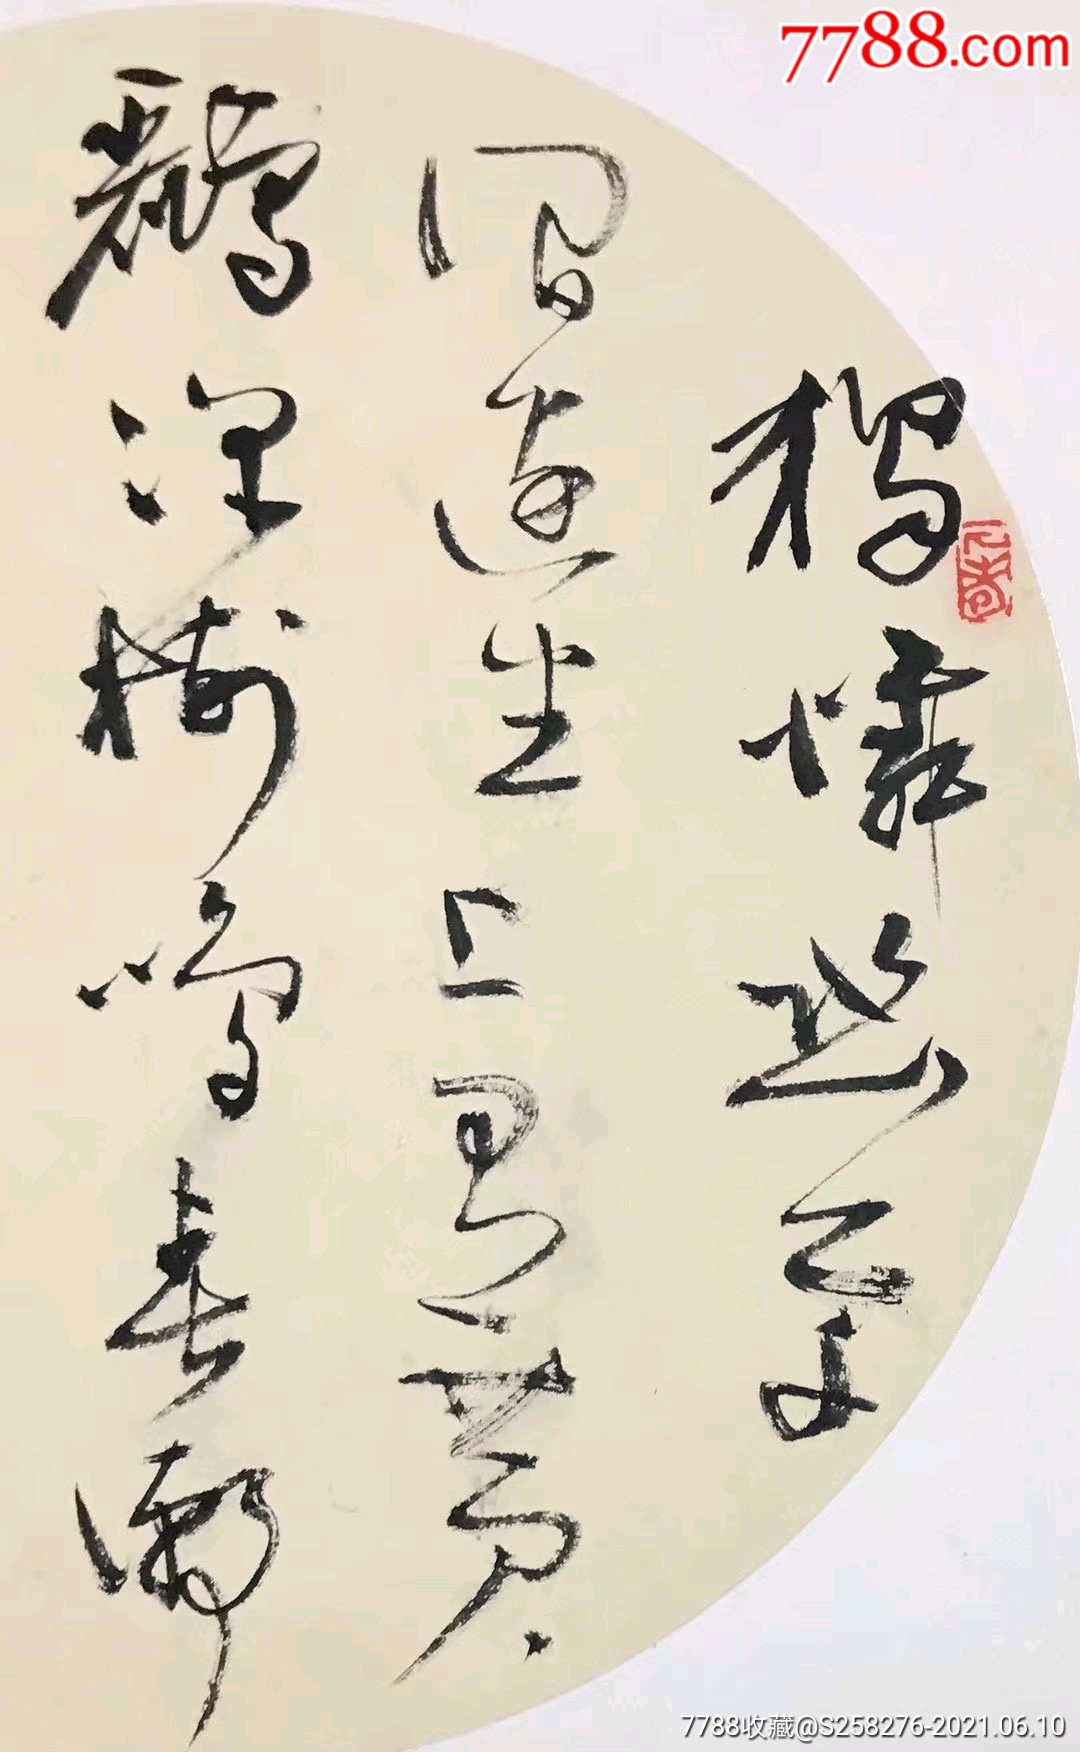 7788.com
獨憐幽草
澗邊生上有黄
鸝深樹鳴春潮
7788收藏@S258276-2021.06.10